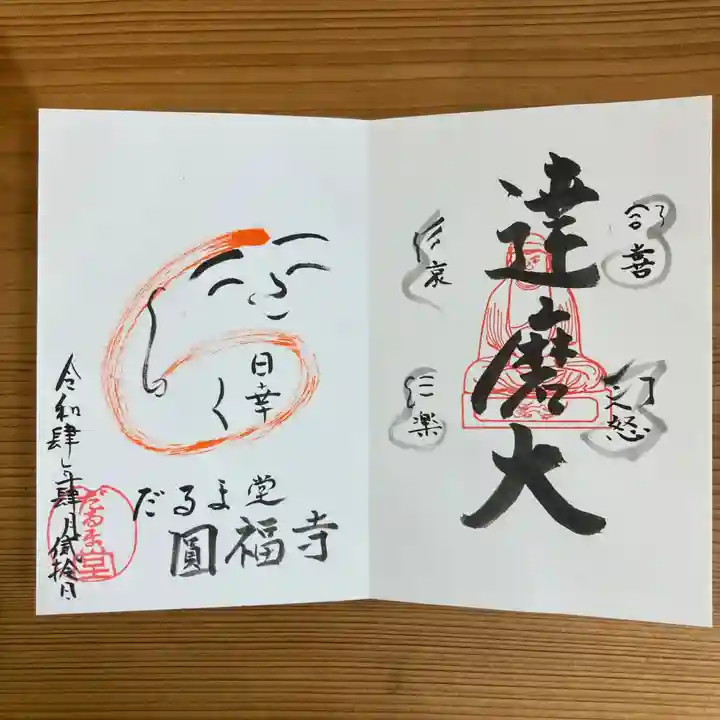 達磨大
喜
怒
哀
楽
日幸
く
だるま堂
圓福寺
令和肆年肆月貳拾日
だるま堂